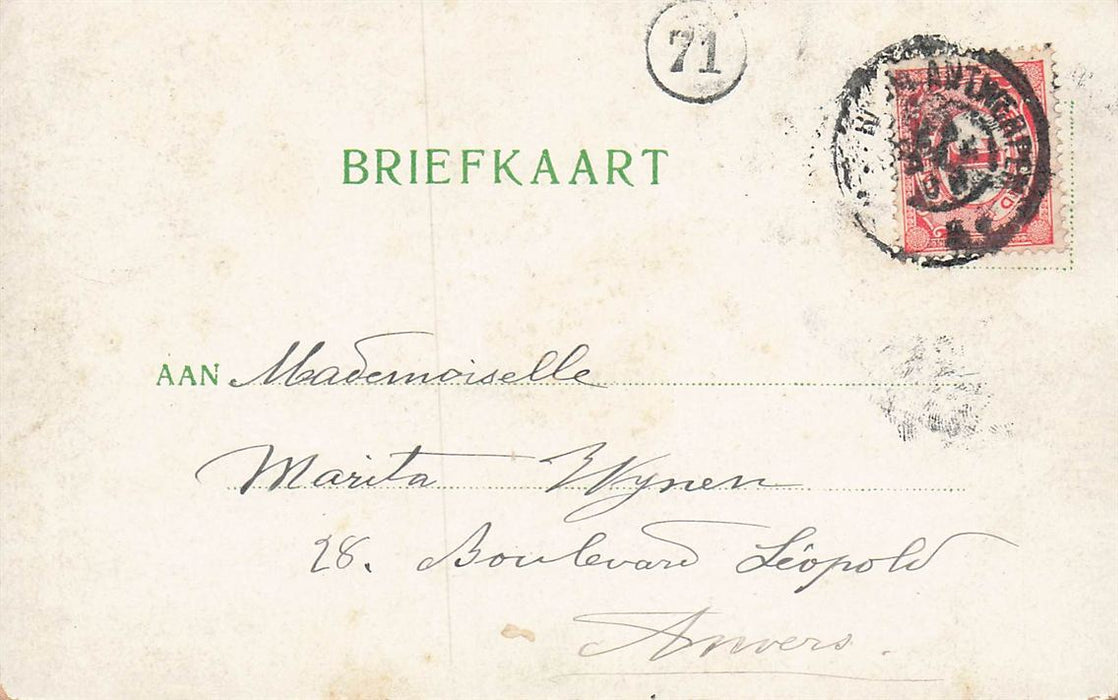 71
ANTWERPEN
BRIEFKAART
AAN Mademoiselle
Marita Wynen
28. Boulevard Léopold
Anvers.